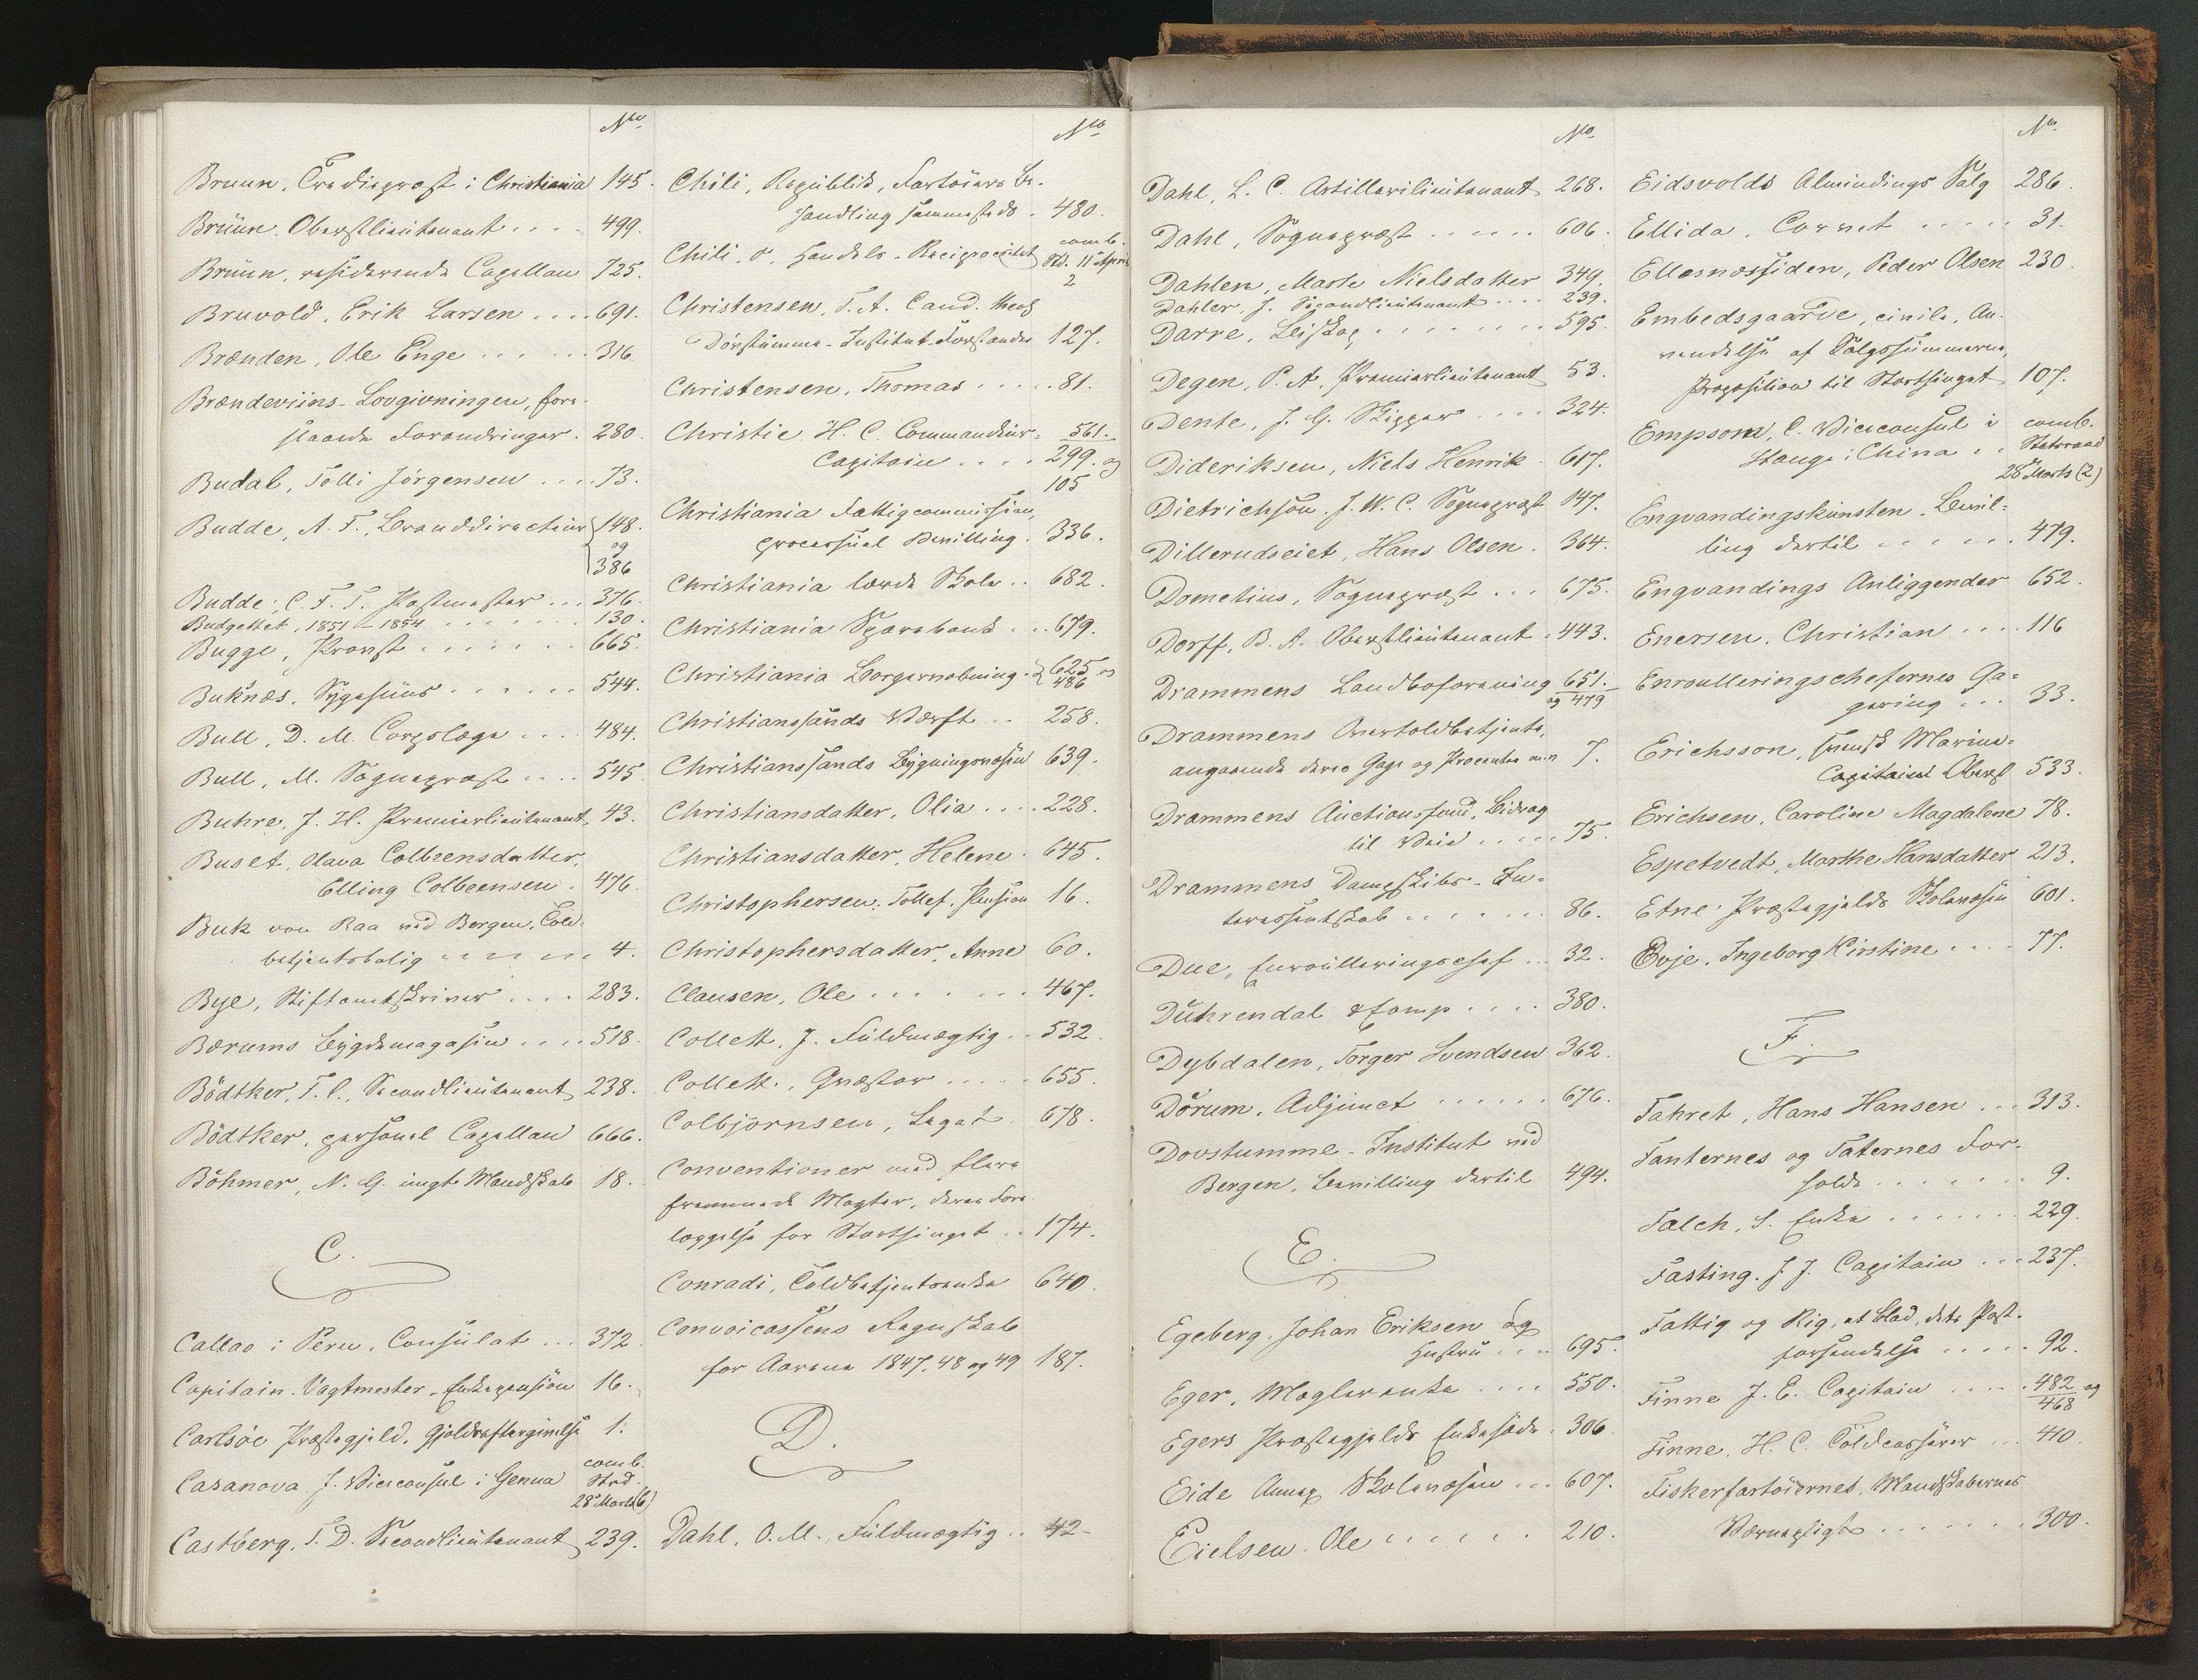 No
Bruun, Tredieprest i Christiania 145.
Brúun, Oberstlieutenant .... 499.
Brúun, residerende Capellan 725.
Bruvold, Erik Larsen .... 691.
Brænden, Ole Enge .... 316
Brændeviins-Lovgivningen, fore-
slaaede Forandringer. 280.
Budal, Tolli Jörgensen .... 73.
Budde, A. F., Branddirecteur 148.
og
386
Budde, C. F. T. Postmester ... 376.
Budgettet, 1851-1854 .... 130.
Bugge, Provst .... 665.
Buknæs, Sygehuus .... 544.
Bull, D. M. Corpslæge .... 484.
Bull, M. Sognepræst .... 545.
Buhre, J. H. Premierlieutenant, 43.
Buset, Olava Colbeensdatter,
Elling Colbeensen. 476.
Buk von Raa ved Bergen, Told-
betjentbolig .... 4.
Bye, Stiftamtskriver .... 283.
Bærums Bygdemagasin .... 518.
Bödtker, T. C., Secondlieutenant 238.
Bödtker, personel Capellan 666.
Böhmer, N. G. ungt Mandskab 18.
C.
Callao i Peru, Consulat ... 372
Capitain-Vagtmester-Enkepension 16.
Carlsöe Præstegjeld, Gjeldseftergivelse 1.
Casanova, J. Viceconsul i Genua comb. Strd. 28 Marts (6)
Castberg, T. D. Secondlieutenant 239.
No
Chili, Republik, Fartöiers Be-
handling sammesteds. 480.
Chili, Handels-Reciprocitet comb. Std. 11 April 2
Christensen, F. A. Cand. theol.
Dövstumme-Institut-Forstander 127.
Christensen, Thomas .... 81.
Christie H. C. Commandeur- 561.
Capitain .... 299. og
105
Christiania Fattigcommission,
processuel Bevilling. 336.
Christiania lærde Skole .. 682.
Christiania Sparebank ... 679.
Christiania Borgervæbning. 625 og
486
Christianssands Værft .. 258.
Christianssands Bygningsvæsen 639.
Christiansdatter, Olia .... 228.
Christiansdatter, Helene. 645.
Christophersen, Tollef, Pension 16.
Christophersdatter, Anne 60.
Clausen, Ole .... 467.
Collett, J. Fuldmægtig .. 532.
Collett, Qvæstor .... 655.
Colbjørnsen, Legat. 678.
Conventioner med flere
fremmede Magter, deres Fore-
læggelse for Storthinget .. 174.
Conradi, Toldbetjentenke 640.
Convoicassens Regnskab
for Aarene 1847, 48 og 49 187.
D.
Dahl, O. M., Fuldmægtig .. 42.
No
Dahl, L. C. Artillerilieutenant 268.
Dahl, Sognepræst .... 606.
Dahlen, Marte Nielsdatter 349.
Dahler, J. Secondlieutenant .... 239.
Darre, Biskop .... 595.
Degen, P. A, Premierlieutenant 53.
Dente, J. G. Skipper .... 324.
Dideriksen, Niels Henrik. 617.
Dietrichson, J. W. C. Sognepræst 147.
Dillerudseiet, Hans Olsen. 364.
Dometius, Sognepræst ... 675.
Dorff, B. A. Oberstlieutenant. 443.
Drammens Landboforening 651.
og 479
Drammens Overtoldbetjente,
angaaende deres Gage og Procenter m.v. 7.
Drammens Auctionsfond, Bidrag
til Veie .... 75.
Drammens Dampskibs-In-
teressentskab .... 86.
Due, Enroulleringschef ... 32.
Duhrendal & Comp .... 380.
Dybdalen, Torger Svendsen 362.
Dörum, Adjunct .... 676.
Dovstumme-Institut ved
Bergen, Bevilling dertil 494.
E.
Egeberg, Johan Eriksen og
Hustru .... 695.
Eger, Maglerenke .... 550.
Egers Præstegjelds Enkesæde. 306.
Eide Annex Skolevæsen ... 607.
Eielsen, Ole .... 210.
No
Eidsvolds Almindings Salg 286.
Ellida, Corvet .... 31.
Ellesnæssiden, Peder Olsen 230.
Embedsgaarde, civile, An-
vendelse af Salgssummerne,
Proposition til Storthinget 107.
Empsom, C. Viceconsul i comb.
Hauge i China .. Statsraad
28 Marts (2)
Engvandingskunsten, Bevil-
ling dertil .... 479.
Engvandings Anliggender 652.
Enersen, Christian .... 116
Enroulleringschefernes Ga-
gering ... 33.
Erichsson, svensk Marine-
Capitain Oberst 533.
Erichsen, Caroline Magdalene 78.
Espetvedt, Marthe Hansdatter 213.
Etne Præstegjelds Skolevæsen 601.
Evje, Ingeborg Kirstine .... 77.
F.
Fahret, Hans Hansen ... 313.
Fanternes og Taternes For-
holde .... 9.
Falch, S. Enke .... 229.
Fasting, J. J. Capitain ... 237.
Fattig og Rig, et Blad, dets Post-
forsendelse .... 92.
Finne J. E. Capitain .... 482 og
468
Finne, H. C. Toldcasserer ... 440.
Fiskerfartöiernes, Mandskabernes
Værnepligt .... 300.